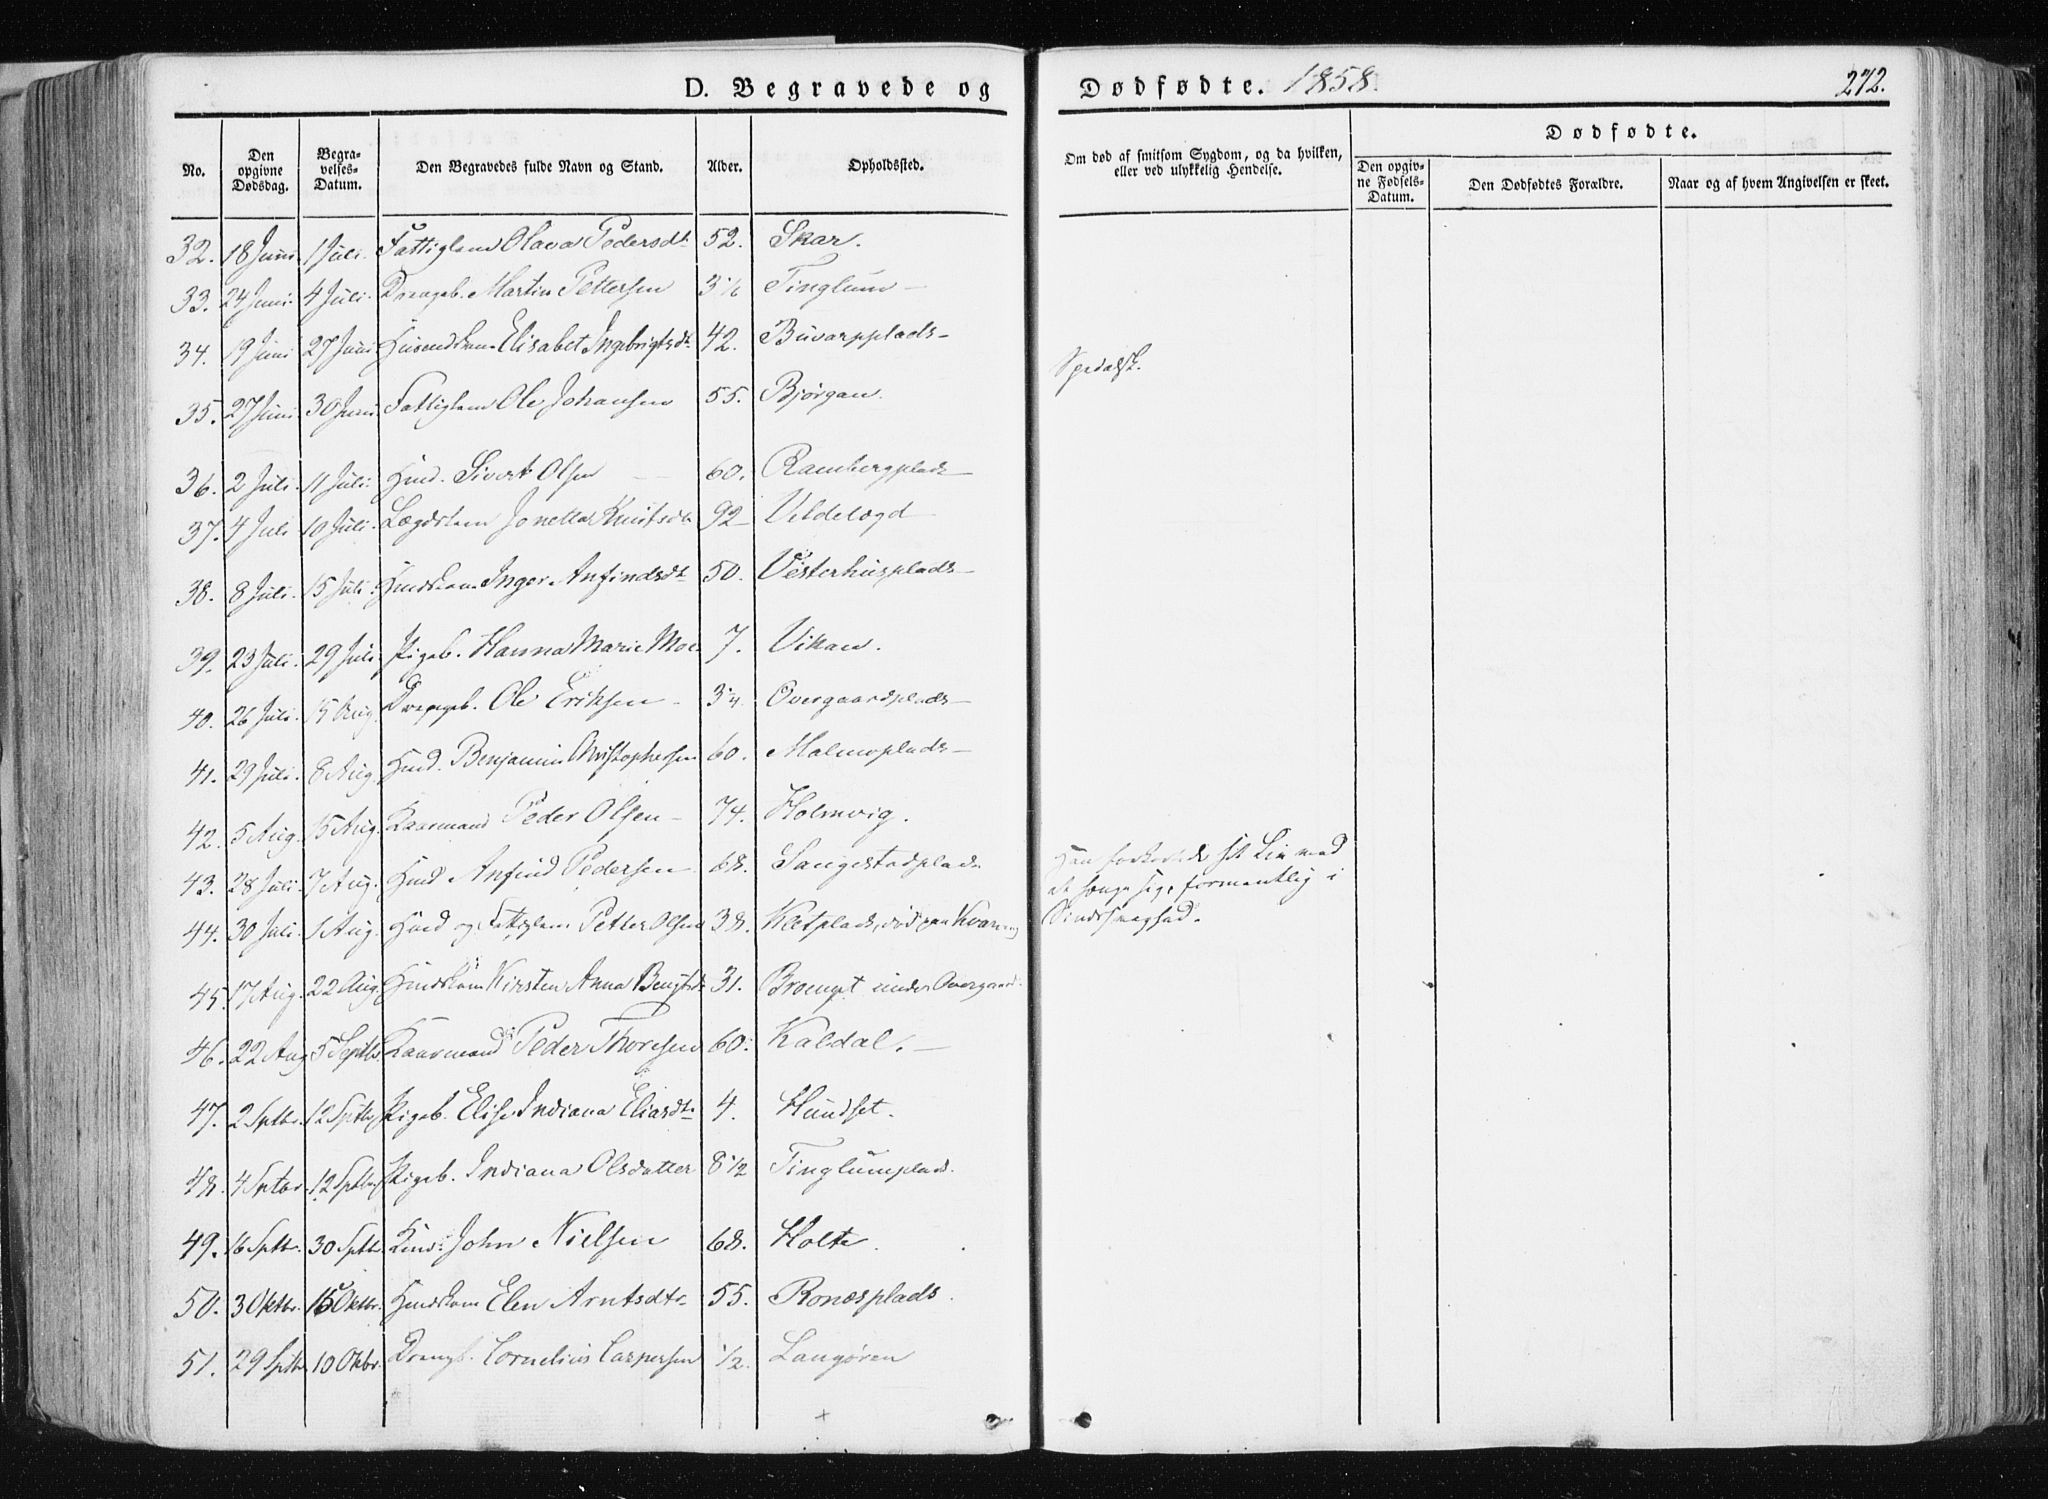 D. Begravede og Dødfødte. 1858. 272.
No.
Den opgivne Dødsdag.
Begravelses-Datum.
Den Begravedes fulde Navn og Stand.
Alder.
Opholdssted.
Om død af smitsom Sygdom, og da hvilken, eller ved ulykkelig Hendelse.
Dødfødte.
Den opgivne Fødsels-Datum.
Den Dødfødtes Forældre.
Naar og af hvem Angivelsen er skeet.
32. 18 Juni. 1 Juli. Fattiglem Olava Pedersdt. 52. Skar.
33. 24 Juni. 4 Juli. Drengeb. Martin Pettersen 3 Tinglum
34. 19 Juni 27 Juni Elisabet Ingebrigtsdt. 42. Buvarpplads Spedalsk.
35. 27 Juni 30 Juni Fattiglem Ole Johansen 55. Bjørgan.
36. 2 Juli. 11 Juli. Hmd. Sivert Olsen 60. Rambergplads
37. 4 Juli 10 Juli. Lægdslem Jonetta Knutsdt 92 Vildelægd
38. 8 Juli. 15 Juli. Inger Anfindsdt 50. Vesterhusplads
39. 23 Juli. 29 Juli Pigeb. Hanna Marie Moe 7. Vikan.
40. 26 Juli. 15 Aug. Drengeb. Ole Eriksen 3/4 Overgaardsplads
41. 29 Juli. 8 Aug. Hmd. Benjamin Christophersen 60. Malmoplads
42. 5 Aug. 15 Aug. Kaarmand Peder Olsen 74. Holmvig.
43. 28 Juli. 7 Aug. Hmd Anfind Pedersen 68. Sangestadplads Han forkortede sit Liv med
at hænge sig, formentlig i
Sindssvaghed.
44. 30 Juli. 1 Aug. og Fattiglem Petter Olsen 38. Kletplads, død paa
45. 17 Aug. 22 Aug. Kirsten Anna Bengtsdt 31. under Overgaard.
46. 22 Aug 5 Septbr Kaarmand Peder Thoresen 60. Kaldal.
47. 2 Sptbr. 12 Sptbr Pigeb. Elise Indiana Eliasdt. 4. Hundset.
48. 4 Sptbr. 12 Sptbr. Pigeb. Indiana Olsdatter 8 1/2 Tinglumplads.
49. 16 Sptbr. 30 Sptbr John Nielsen 68. Holte.
50. 3 Oktbr. 15 Oktbr. Elen Arntsdtr 55. Ronesplads.
51. 29 Sptbr. 10 Oktbr. Drengb. Cornelius Caspersen 1/2. Langøren